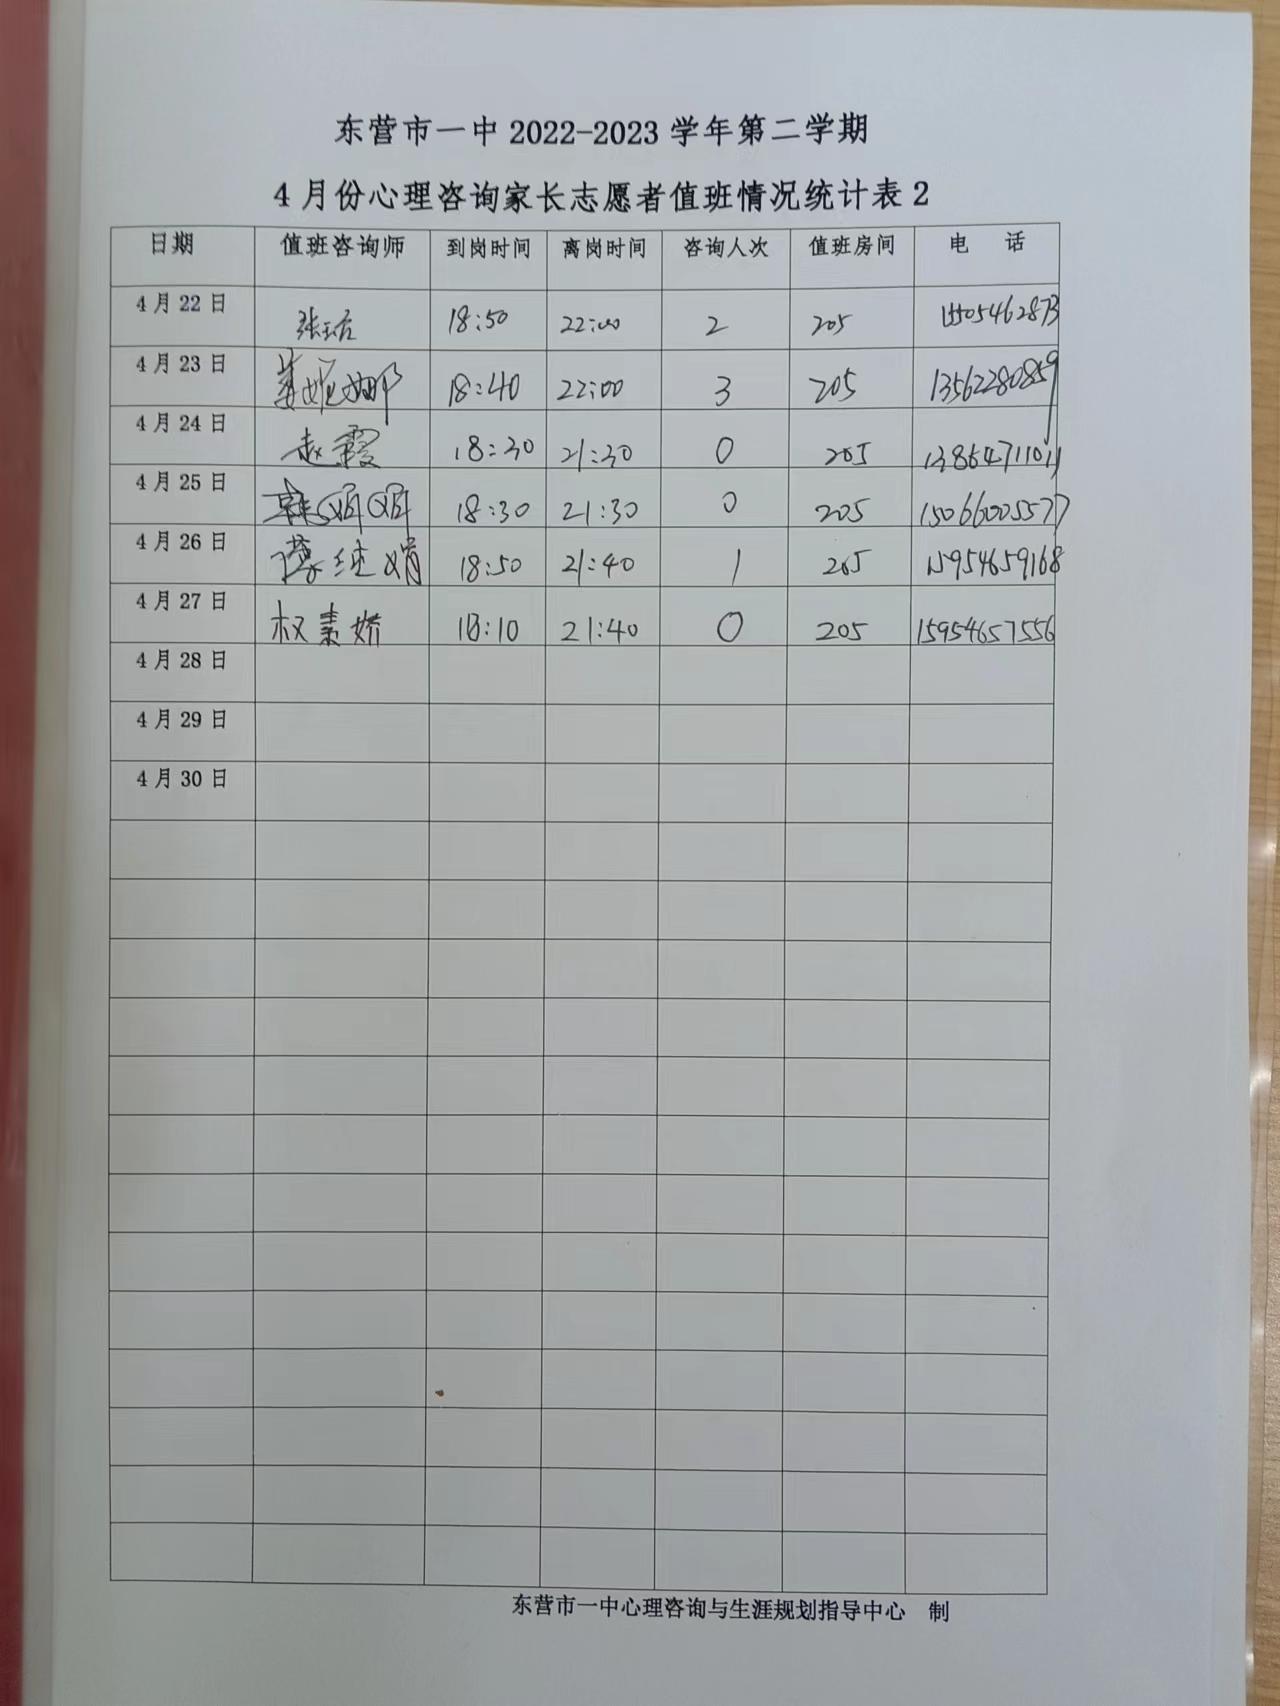 东营市一中 2022-2023 学年第二学期
4 月份心理咨询家长志愿者值班情况统计表 2
日期 值班咨询师 到岗时间 离岗时间 咨询人次 值班房间 电 话
4 月 22 日 18:50 22:00 2 205 15505462873
4 月 23 日 姜妮娜 18:40 22:00 3 205 13562280859
4 月 24 日 赵霞 18:30 21:30 0 205
4 月 25 日 韩娟娟 18:30 21:30 0 205 15066005577
4 月 26 日 21:40 18:50 1 205 15954659168
4 月 27 日 权素娇 21:40 0 205 15954657556
4 月 28 日
4 月 29 日
4 月 30 日
东营市一中心理咨询与生涯规划指导中心 制